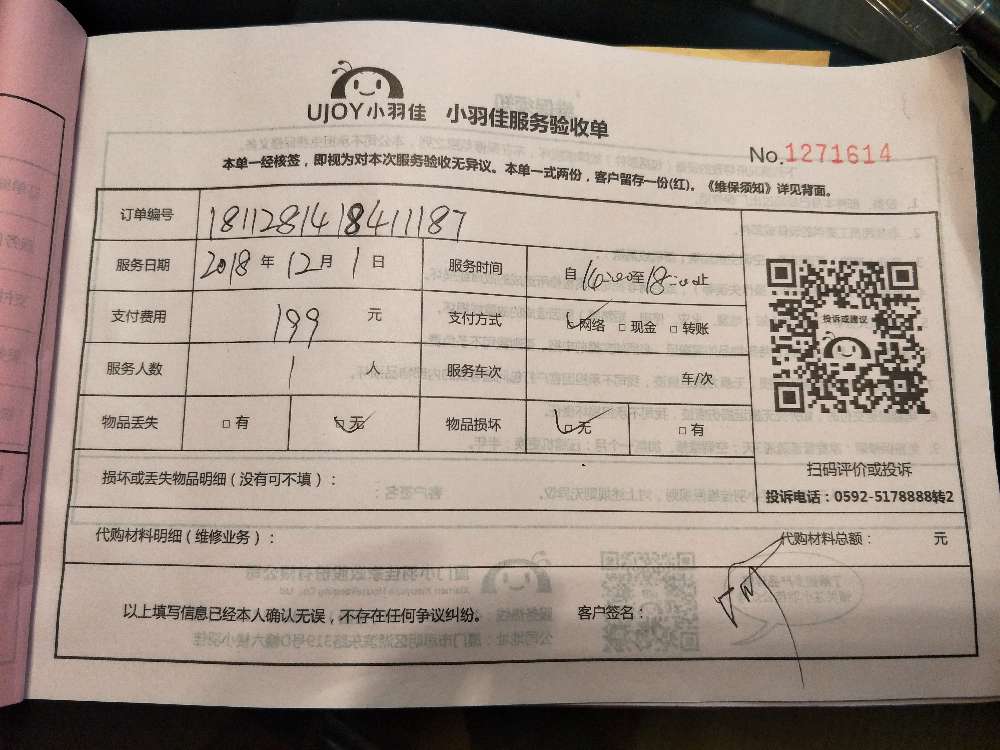 UJOY小羽佳 小羽佳服务验收单
No.1271614
本单一经核签，即视为对本次服务验收无异议。本单一式两份，客户留存一份(红)。《维保须知》详见背面。
订单编号 181128141841187
服务日期 2018 年 12 月 1 日 服务时间 自 14:00 至 18:00 止
支付费用 199 元 支付方式 网络 □ 现金 □ 转账
服务人数 1 人 服务车次 车/次
物品丢失 □ 有 □ 无 物品损坏 □ 无 □ 有
投诉或建议
扫码评价或投诉
投诉电话：0592-5178888转2
损坏或丢失物品明细（没有可不填）：
代购材料明细（维修业务）： 代购材料总额： 元
以上填写信息已经本人确认无误，不存在任何争议纠纷。 客户签名：